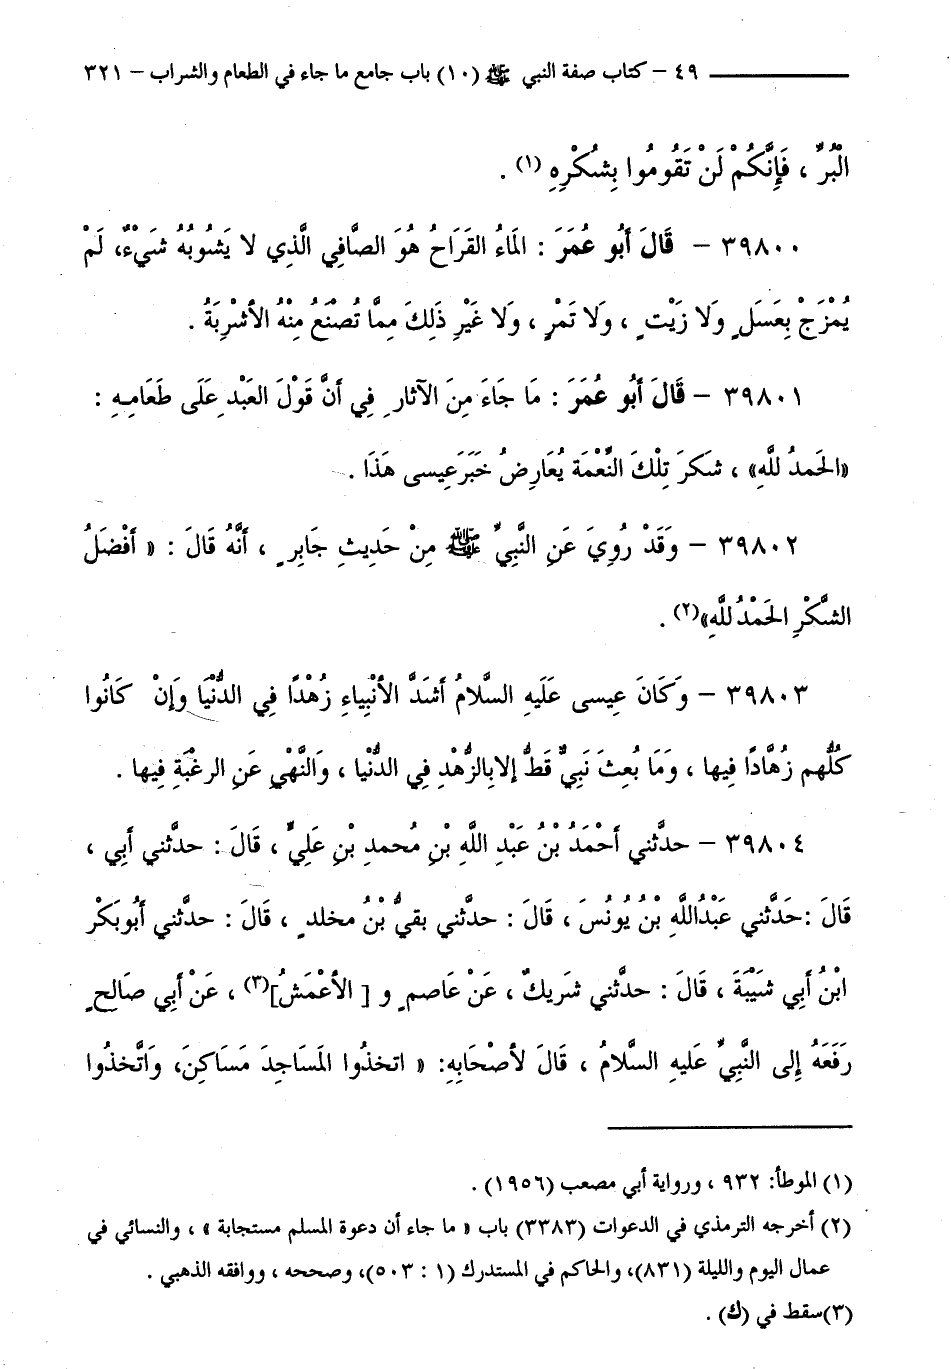 ٤٩ – كتاب صفة النبي ﷺ (١٠) باب جامع ما جاء في الطعام والشراب – ٣٢١
الْبُرِّ ، فَإِنَّكُمْ لَنْ تَقُومُوا بِشُكْرِهِ (١) .
٣٩٨٠٠ – قَالَ أَبُو عُمَرَ : المَاءُ القَرَاحُ هُوَ الصَّافِي الَّذِي لا يَشُوبُهُ شَيْءٌ، لَمْ
يُمْزَجْ بِعَسَلٍ وَلا زَيْتٍ ، وَلا تَمْرٍ ، وَلا غَيْرِ ذَلِكَ مِمَّا تُصْنَعُ مِنْهُ الأشْرِبَةُ .
٣٩٨٠١ – قَالَ أَبُو عُمَرَ : مَا جَاءَ مِنَ الآثارِ فِي أَنَّ قَوْلَ العَبْدِ عَلَى طَعَامِهِ :
«الحَمدُ للَّهِ» ، شكَرَ تِلْكَ النِّعْمَة يُعَارِضُ خَبَرَ عِيسى هَذَا .
٣٩٨٠٢ – وَقَدْ رُوِيَ عَنِ النَّبِيِّ ﷺ مِنْ حَدِيثِ جَابِرٍ ، أَنَّهُ قَالَ : « أَفْضَلُ
الشُّكْرِ الحَمْدُ للَّهِ»(٢) .
٣٩٨٠٣ – وَكَانَ عِيسى عَلَيهِ السَّلامُ أشَدَّ الأنْبِياءِ زُهْدًا فِي الدُّنْيَا وَإِنْ كَانُوا
كُلُّهم زُهَّادًا فِيها ، وَمَا بُعِثَ نَبِيٌّ قَطُّ إلا بِالزُّهْدِ فِي الدُّنْيا ، وَالنَّهْيِ عَنِ الرغْبَةِ فِيها .
٣٩٨٠٤ – حدَّثني أحْمَدُ بْنُ عَبْدِ اللَّهِ بْنِ مُحمدِ بْنِ عَلِيٍّ ، قَالَ : حدَّثني أَبِي ،
قَالَ :حَدَّثني عَبْدُاللَّهِ بْنُ يُونُسَ ، قَالَ : حدَّثني بقيُّ بْنُ مخلدٍ ، قَالَ : حدَّثني أَبُو بَكْرِ
ابْنُ أَبِي شَيْبَةَ ، قَالَ : حدَّثني شَرِيكٌ ، عَنْ عَاصمٍ و [ الأعْمَشُ](٣) ، عَنْ أَبِي صَالحٍ
رَفَعَهُ إِلى النَّبِيِّ عَليهِ السَّلامُ ، قَالَ لأصْحَابِهِ: « اتخذُوا المَسَاجِدَ مَسَاكِنَ، وَاتَّخذُوا
(١) الموطأ: ٩٣٢ ، ورواية أبي مصعب (١٩٥٦) .
(٢) أخرجه الترمذي في الدعوات (٣٣٨٣) باب « ما جاء أن دعوة المسلم مستجابة » ، والنسائي في
عمال اليوم والليلة (٨٣١)، والحاكم في المستدرك (١ : ٥٠٣)، وصححه ، ووافقه الذهبي .
(٣)سقط في (ك) .